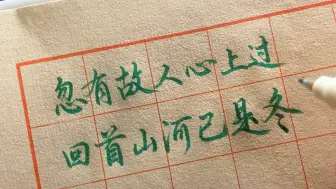 忽有故人心上过
回首山河已是冬